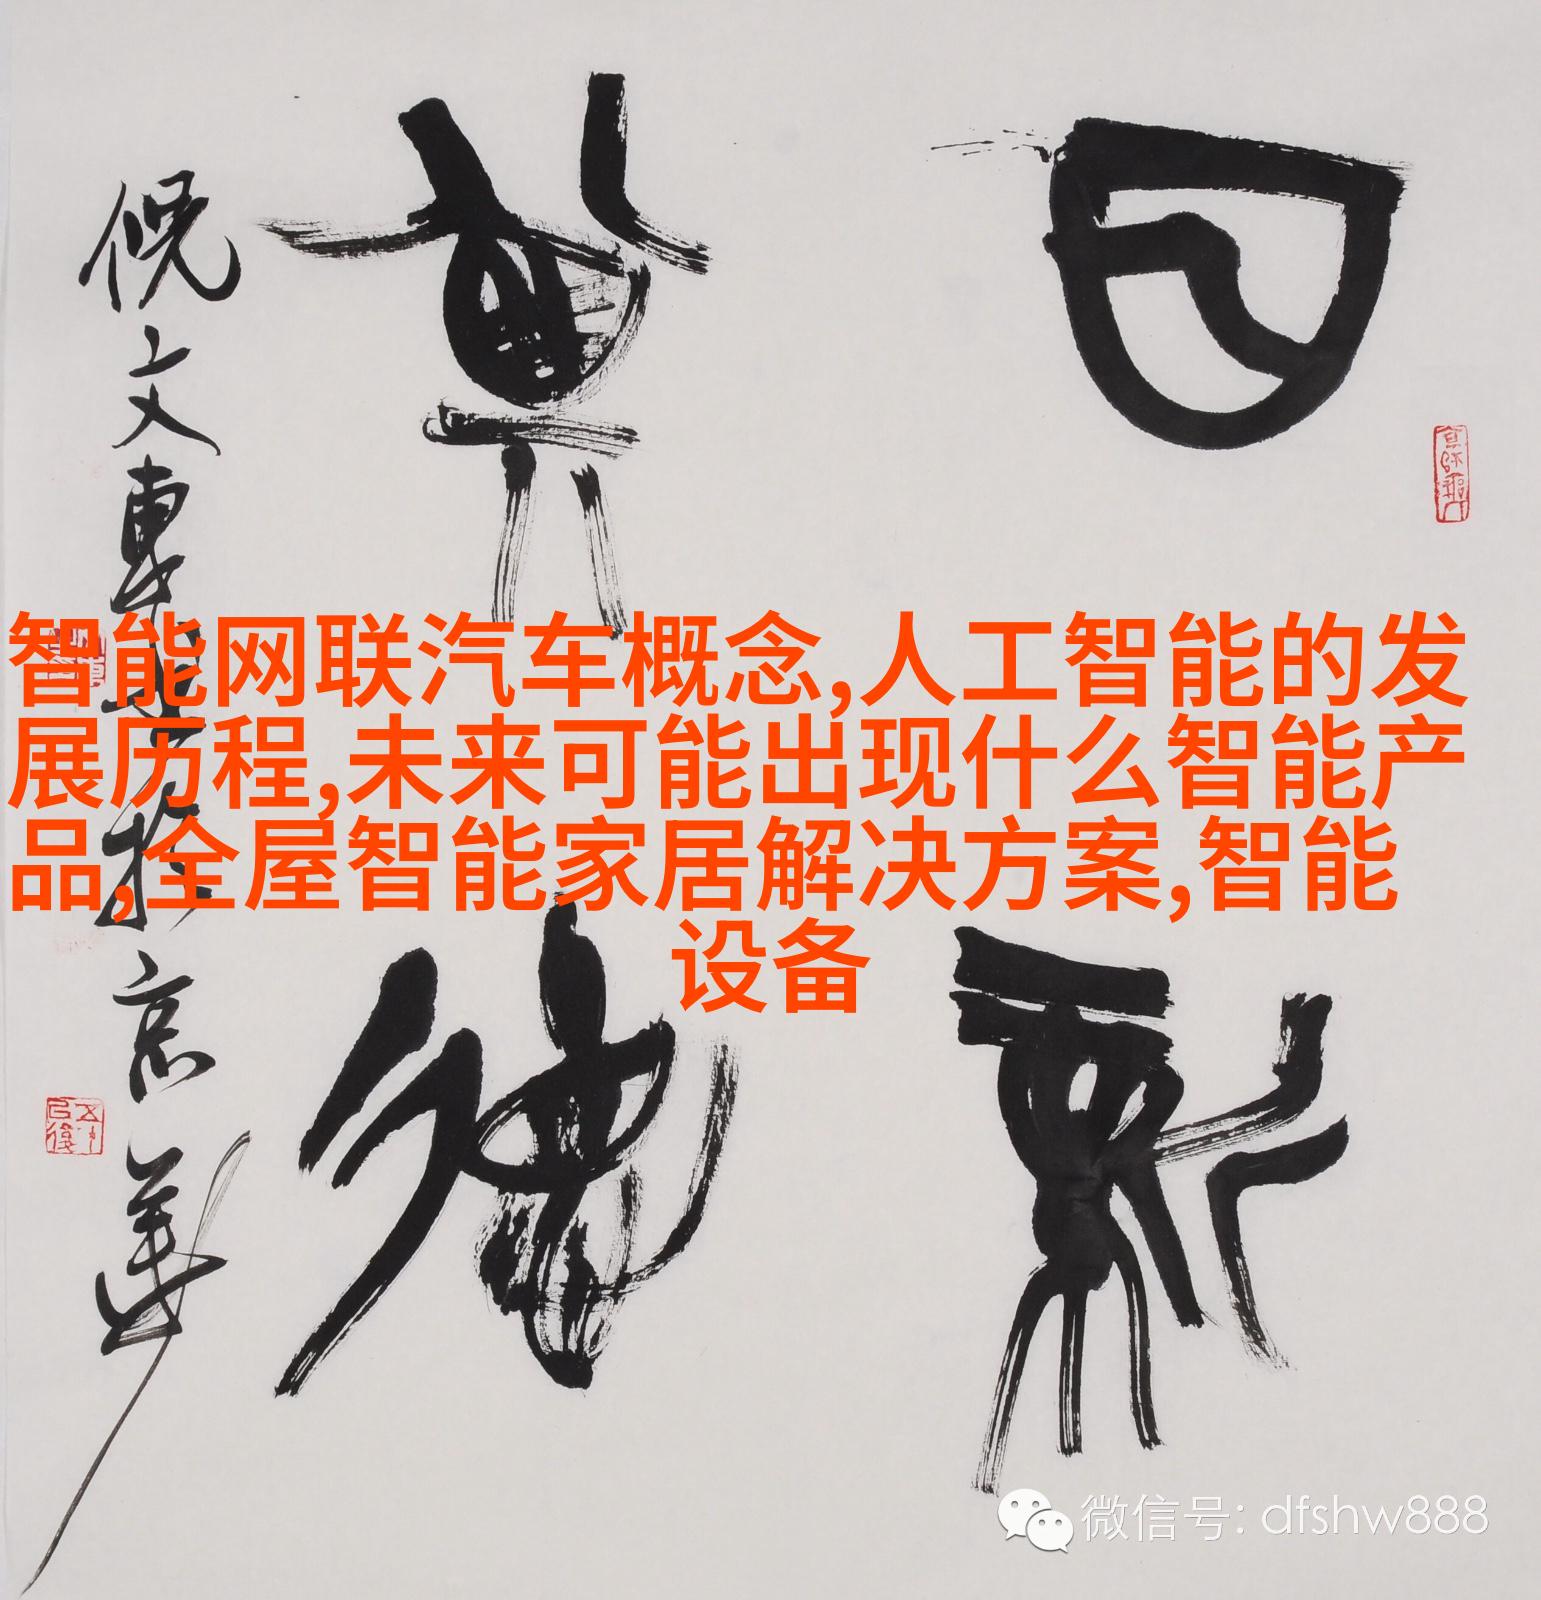 智能网联汽车概念,人工智能的发
展历程,未来可能出现什么智能产
品,全屋智能家居解决方案,智能
设备
日新
其德
倪文東書於京華
微信号: dfshw888